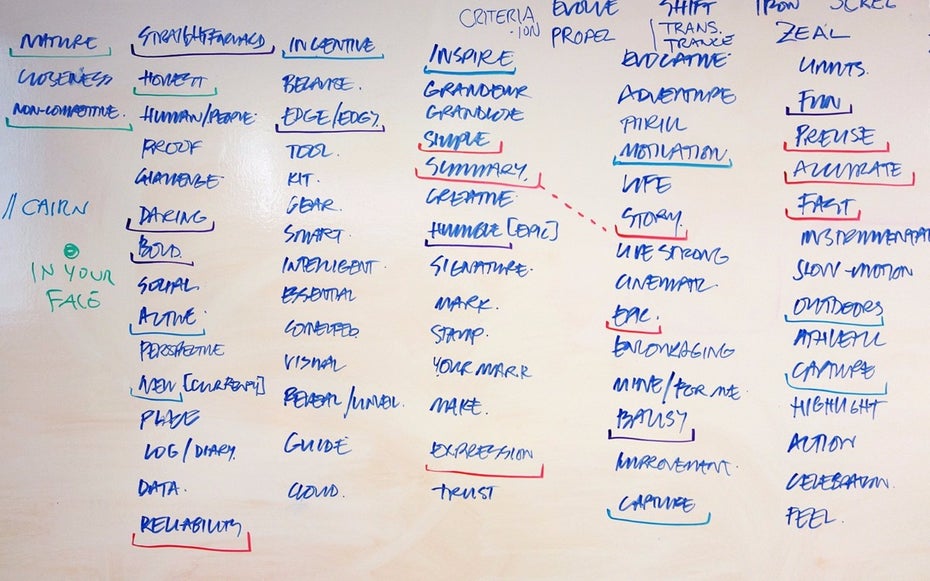 NATURE
CLOSENESS
NON-COMPETITIVE.
// CAIRN
IN YOUR
FACE
STRAIGHTFORWARD
HONEST
HUMAN/PEOPLE
PROOF
CHALLENGE
DARING
BOLD.
SOCIAL
ACTIVE
PERSPECTIVE
NEW [CURRENT]
PLACE
LOG/DIARY.
DATA.
RELIABILITY
INCENTIVE
BECAUSE.
EDGE/EDGY.
TOOL.
KIT.
GEAR.
SMART.
INTELLIGENT.
ESSENTIAL
CONNECTED
VISUAL
REVEAL/UNVEIL.
GUIDE
CLOUD.
CRITERIA
-ION
INSPIRE
GRANDEUR
GRANDIOSE
SIMPLE
SUMMARY.
CREATIVE
HUMBLE [EPIC]
SIGNATURE.
MARK.
STAMP.
YOUR MARK
MAKE.
EXPRESSION
TRUST
EVOLVE
PROPEL
SHIFT
TRANS.
TRANCE
EVOCATIVE
ADVENTURE
THRILL
MOTIVATION
LIFE
STORY.
LIVE STRONG
CINEMATIC.
EPIC.
ENCOURAGING
MINE/FOR ME.
BALLSY
IMPROVEMENT.
CAPTURE
IRON
ZEAL
LIMITS.
FUN
PRECISE
ACCURATE
FAST
SLOW-MOTION
OUTDOORS
CAPTURE
HIGHLIGHT
ACTION
CELEBRATION.
FEEL.